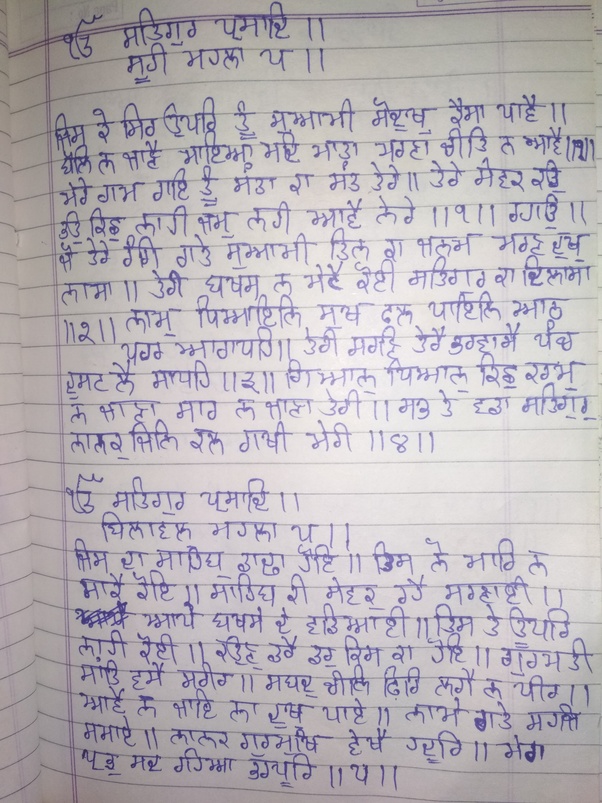 ੴ ਸਤਿਗੁਰ ਪ੍ਰਸਾਦਿ ।।
ਸੂਹੀ ਮਹਲਾ ੫ ।।
ਜਿਸ ਕੇ ਸਿਰ ਊਪਰਿ ਤੂੰ ਸੁਆਮੀ ਸੋ ਦੁਖੁ ਕੈਸਾ ਪਾਵੈ ।।
ਬੋਲਿ ਨ ਜਾਣੈ ਮਾਇਆ ਮਦਿ ਮਾਤਾ ਮਰਣਾ ਚੀਤਿ ਨ ਆਵੈ ।।੧।।
ਮੇਰੇ ਰਾਮ ਰਾਇ ਤੂੰ ਸੰਤਾ ਕਾ ਸੰਤ ਤੇਰੇ ।। ਤੇਰੇ ਸੇਵਕ ਕਉ
ਭਉ ਕਿਛੁ ਨਾਹੀ ਜਮੁ ਨਹੀ ਆਵੈ ਨੇਰੇ ।।੧।। ਰਹਾਉ ।।
ਜੋ ਤੇਰੈ ਰੰਗਿ ਰਾਤੇ ਸੁਆਮੀ ਤਿਨ ਕਾ ਜਨਮ ਮਰਣ ਦੁਖੁ
ਨਾਸਾ ।। ਤੇਰੀ ਬਖਸ ਨ ਮੇਟੈ ਕੋਈ ਸਤਿਗੁਰ ਕਾ ਦਿਲਾਸਾ
।।੨।। ਨਾਮੁ ਧਿਆਇਨਿ ਸੁਖ ਫਲ ਪਾਇਨਿ ਆਠ
ਪਹਰ ਆਰਾਧਹਿ ।। ਤੇਰੀ ਸਰਣਿ ਤੇਰੈ ਭਰਵਾਸੈ ਪੰਚ
ਦੁਸਟ ਲੈ ਸਾਧਹਿ ।।੩।। ਗਿਆਨੁ ਧਿਆਨੁ ਕਿਛੁ ਕਰਮੁ
ਨ ਜਾਣਾ ਸਾਰ ਨ ਜਾਣਾ ਤੇਰੀ ।। ਸਭ ਤੇ ਵਡਾ ਸਤਿਗੁਰੁ
ਨਾਨਕੁ ਜਿਨਿ ਕਲ ਰਾਖੀ ਮੇਰੀ ।।੪।।
ੴ ਸਤਿਗੁਰ ਪ੍ਰਸਾਦਿ ।।
ਬਿਲਾਵਲ ਮਹਲਾ ੫ ।।
ਜਿਸ ਕਾ ਸਾਹਿਬੁ ਡਾਢਾ ਹੋਇ ।। ਤਿਸ ਨੋ ਮਾਰਿ ਨ
ਸਾਕੈ ਕੋਇ ।। ਸਾਹਿਬ ਕੀ ਸੇਵਕੁ ਰਹੈ ਸਰਣਾਈ ।।
ਆਪੇ ਬਖਸੇ ਦੇ ਵਡਿਆਈ ।। ਤਿਸ ਤੇ ਊਪਰਿ
ਨਾਹੀ ਕੋਈ ।। ਕਉਣੁ ਡਰੈ ਡਰੁ ਕਿਸ ਕਾ ਹੋਇ ।। ਗੁਰਮਤੀ
ਸਾਂਤਿ ਵਸੈ ਸਰੀਰ ।। ਸਬਦੁ ਚੀਨਿ ਫਿਰਿ ਲਗੈ ਨ ਪੀਰ ।।
ਆਵੈ ਨ ਜਾਇ ਨਾ ਦੁਖੁ ਪਾਏ ।। ਨਾਮੇ ਰਾਤੇ ਸਹਜਿ
ਸਮਾਏ ।। ਨਾਨਕ ਗੁਰਮੁਖਿ ਵੇਖੈ ਹਦੂਰਿ ।। ਮੇਰਾ
ਪ੍ਰਭੁ ਸਦ ਰਹਿਆ ਭਰਪੂਰਿ ।।੫।।